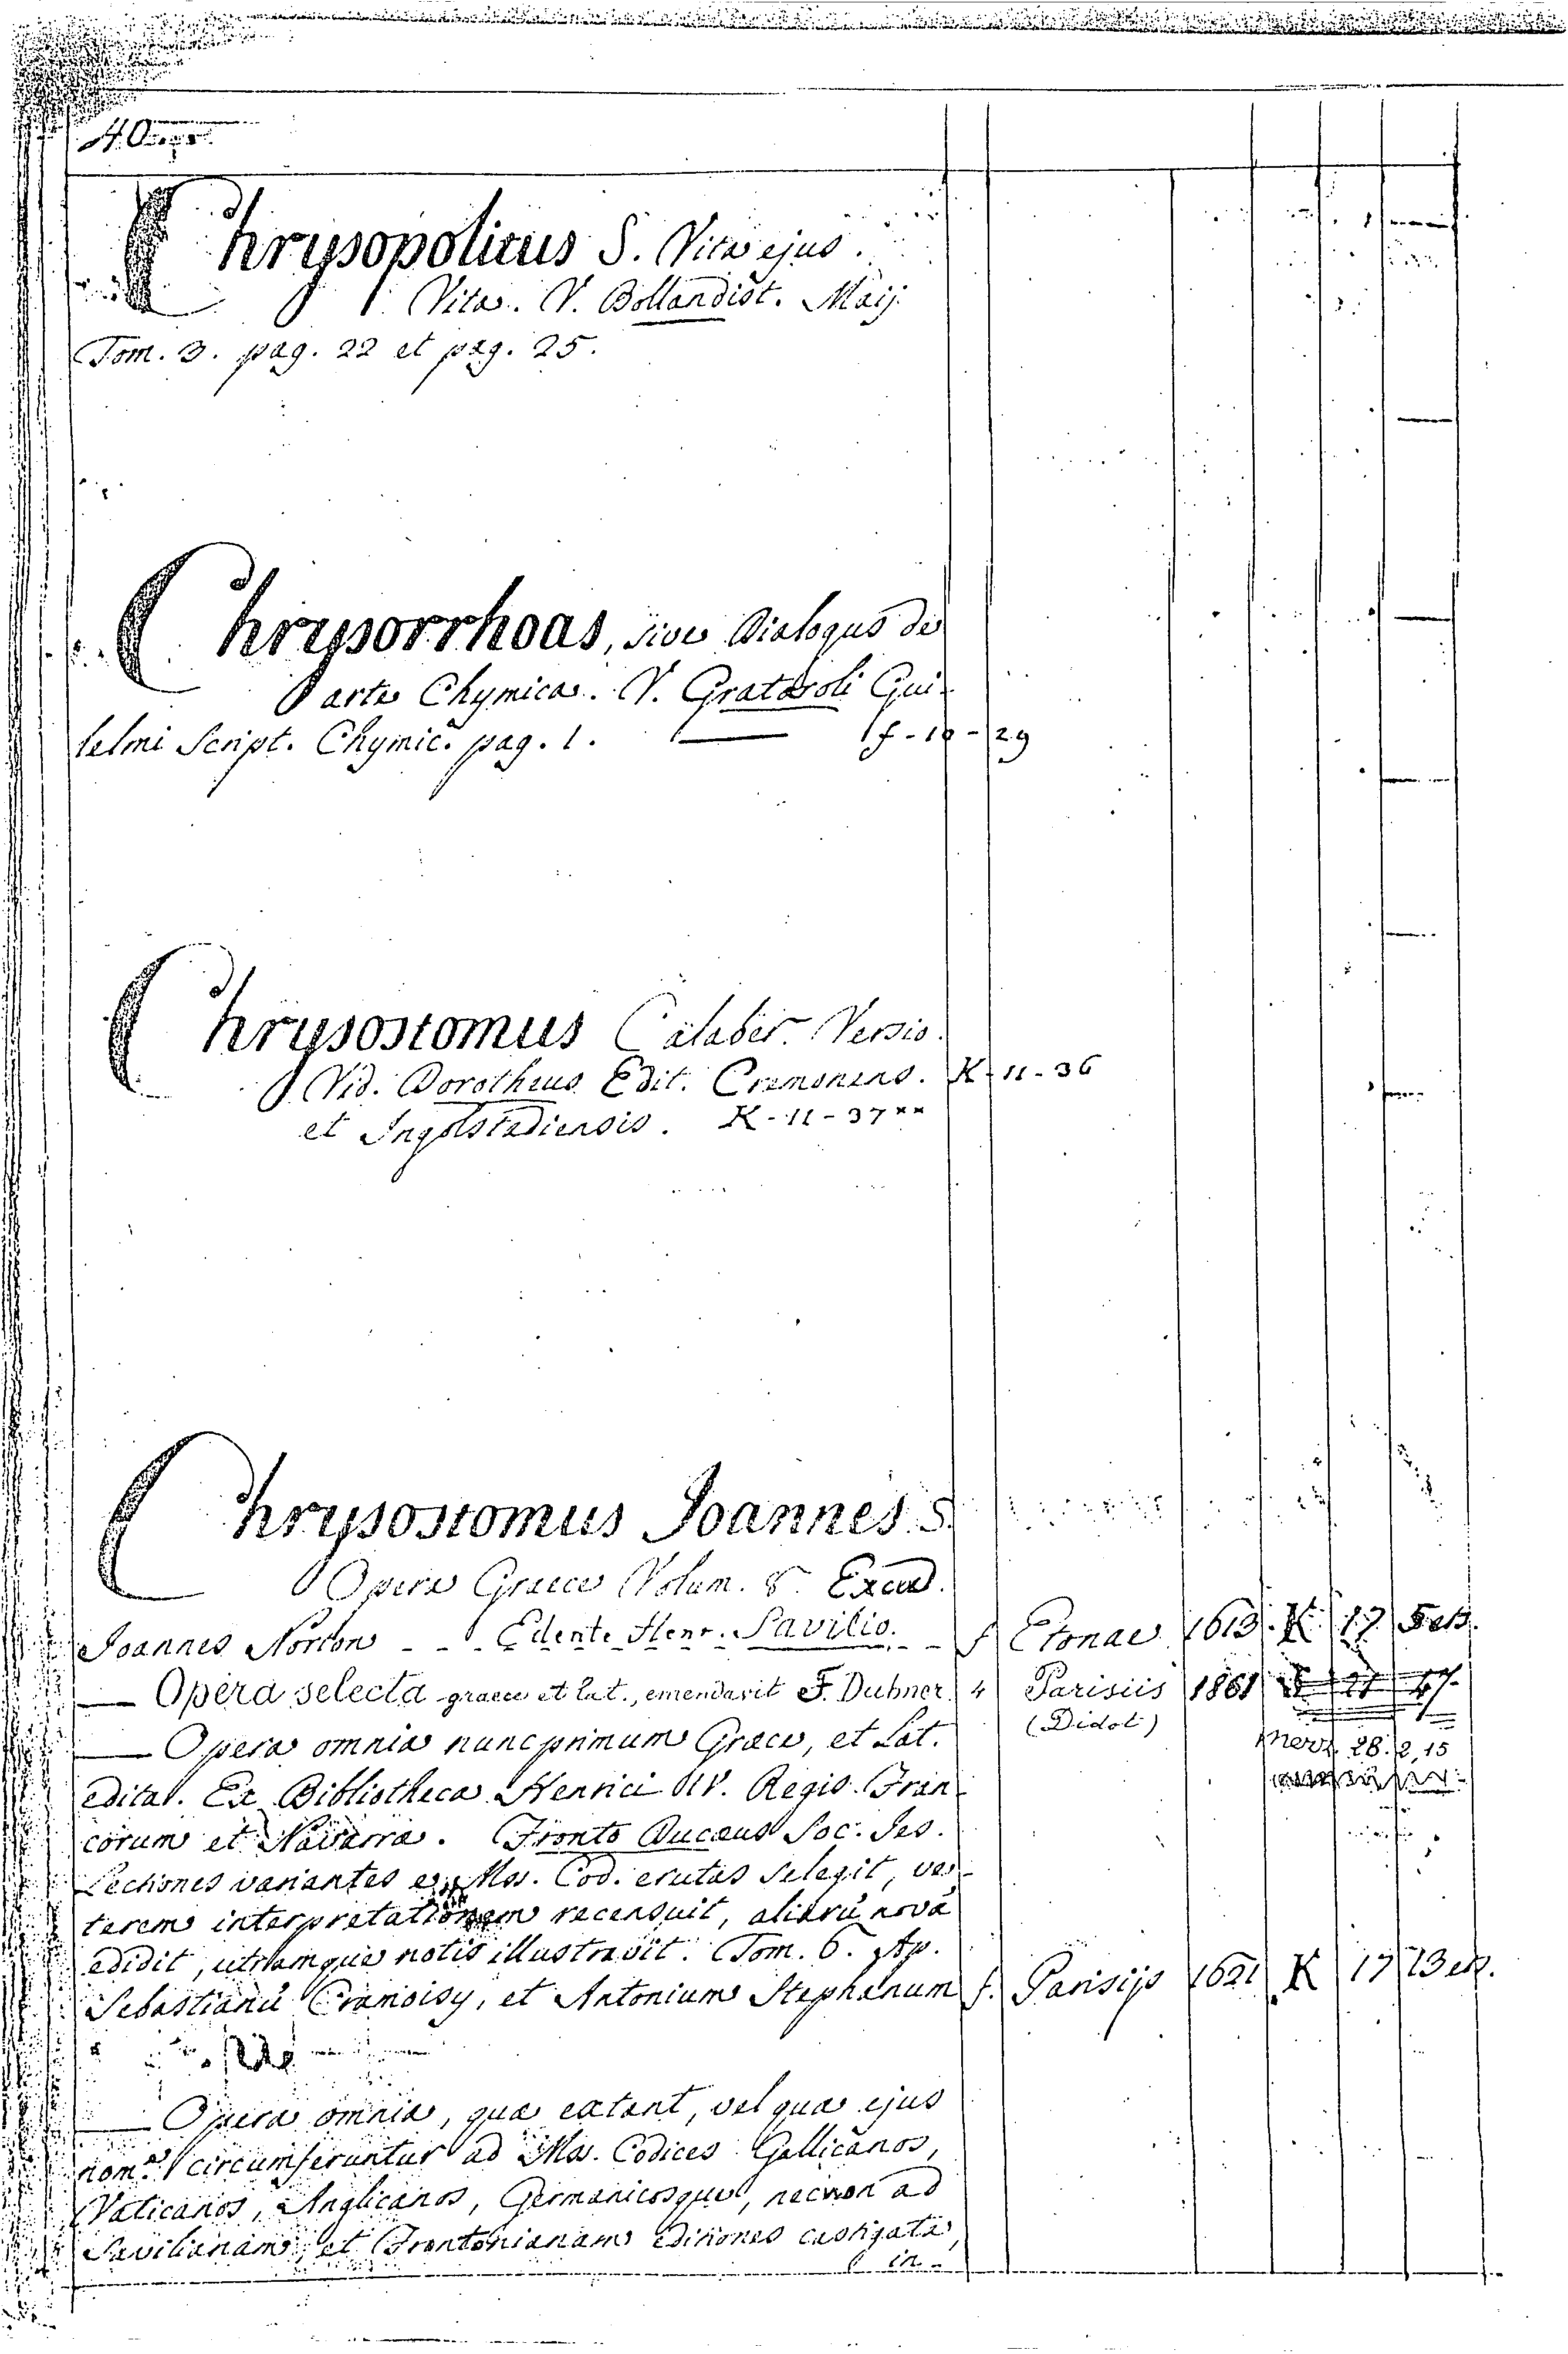 Chrysopolitus S. Vita ejus.
Vita. V. Bollandist. Maij
Tom. 3. pag. 22 et pag. 25.
Chrysorrhoas, sive Dialogus de
arte Chymica. V. Grataroli Gui-
lelmi Script. Chymic. pag. 1. — f - 10 - 29
Chrysostomus Calaber. Versio.
Vid. Dorotheus Edit. Cremonens. K - 11 - 36
et Ingolstadiensis. K - 11 - 37 **
Chrysostomus Joannes S.
Opera Graece Volum. 8. Excud.
Joannes Norton - - - Edente Henr. Savilio. - - f Etonae 1613. K 17 5 etc.
— Opera selecta graece et lat., emendavit F. Dubner 4 Parisiis 1861
(Didot)
Merz. 28. 2, 15
— Opera omnia nunc primum Graece, et Lat.
edita. Ex Bibliotheca Henrici IV. Regis Fran-
corum et Navarrae. Fronto Ducaeus Soc. Jes.
Lectiones variantes ex Mss. Cod. erutas selegit, ve-
terem interpretationem recensuit, aliarū novā
edidit, utramque notis illustravit. Tom. 6. Ap.
Sebastianū Cramoisy, et Antonium Stephanum f. Parisijs 1621 K 17 13 etc.
— Opera omnia, quae extant, vel quae ejus
nome circumferuntur ad Mss. Codices Gallicanos,
Vaticanos, Anglicanos, Germanicosque, necnon ad
Savilianam, et Frontonianam editiones castigata,
in-